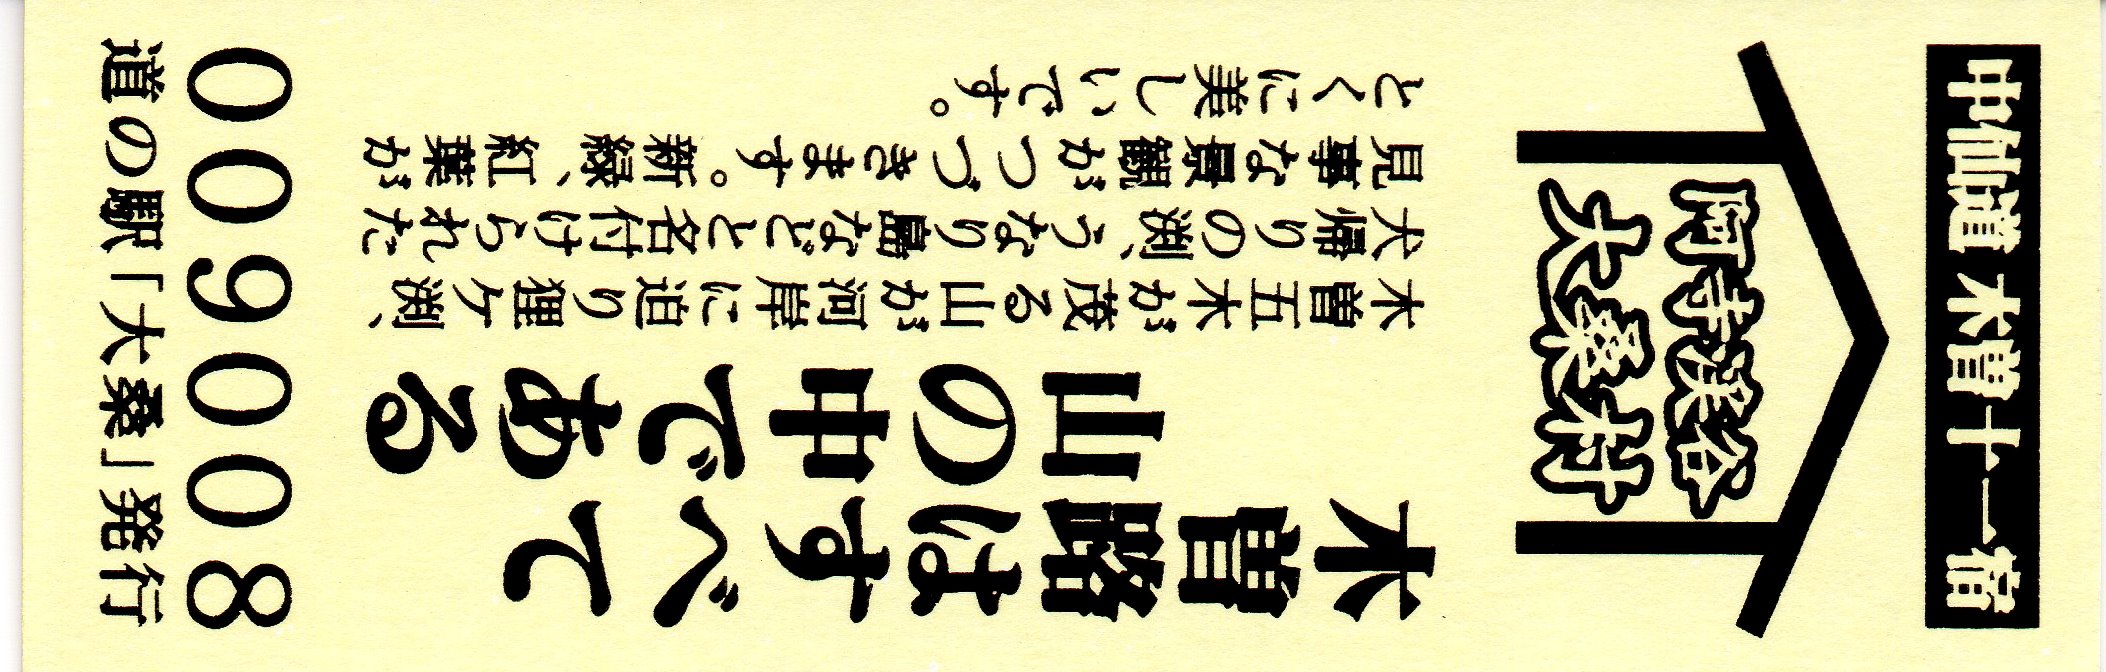 中仙道 木曽十一宿
阿寺渓谷
大桑村
木曽路はすべて
山の中である
木曽五木が茂る山が河岸に迫り狸ケ渕、
犬帰りの渕、うなり島などと名付けられた
見事な景観がつづきます。新緑、紅葉が
とくに美しいです。
009008
道の駅「大桑」発行